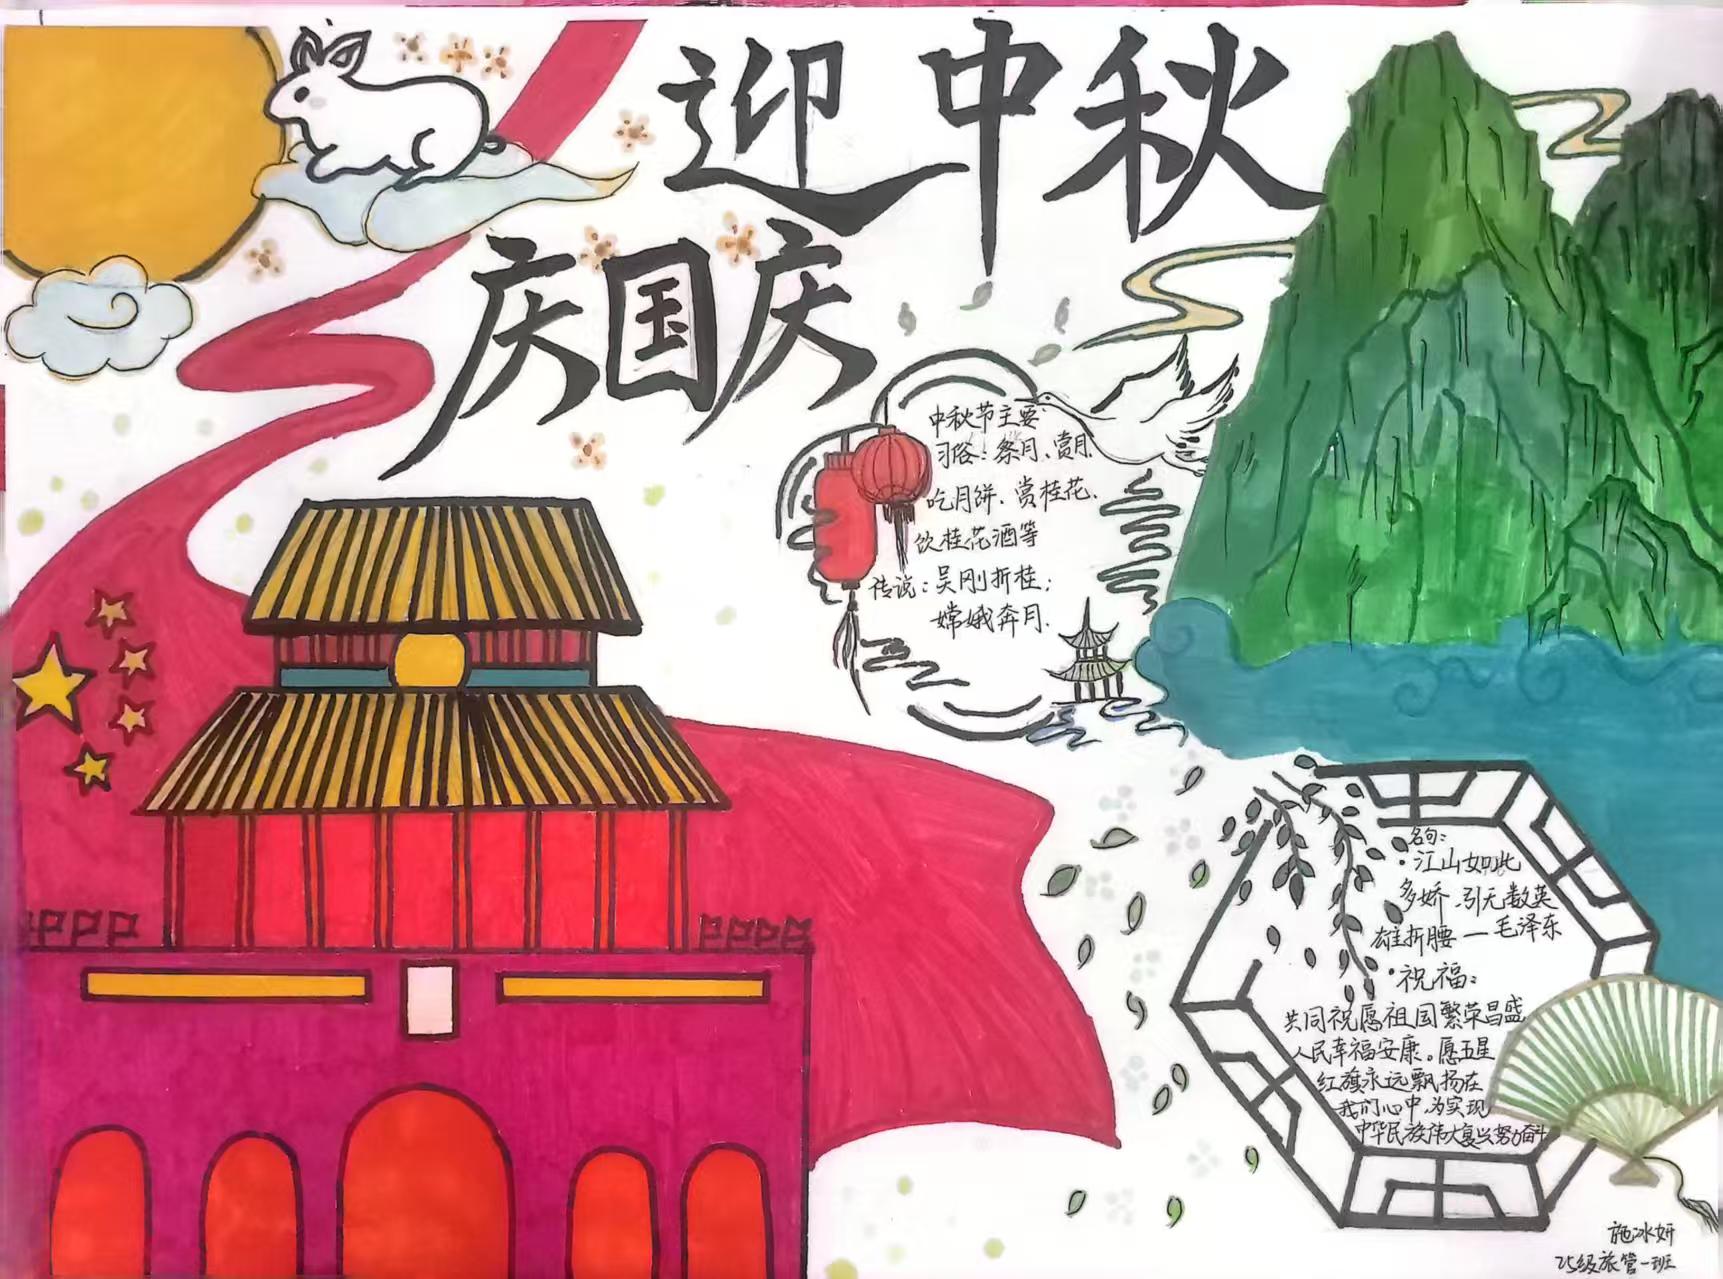 迎中秋
庆国庆
中秋节主要
习俗：祭月、赏月、
吃月饼、赏桂花、
饮桂花酒等
传说：吴刚折桂；
嫦娥奔月.
名句：
·江山如此
多娇.引无数英
雄折腰—毛泽东
·祝福：
共同祝愿祖国繁荣昌盛
人民幸福安康。愿五星
红旗永远飘扬在
我们心中.为实现
中华民族伟大复兴努力奋斗
施冰妍
25级旅管一班